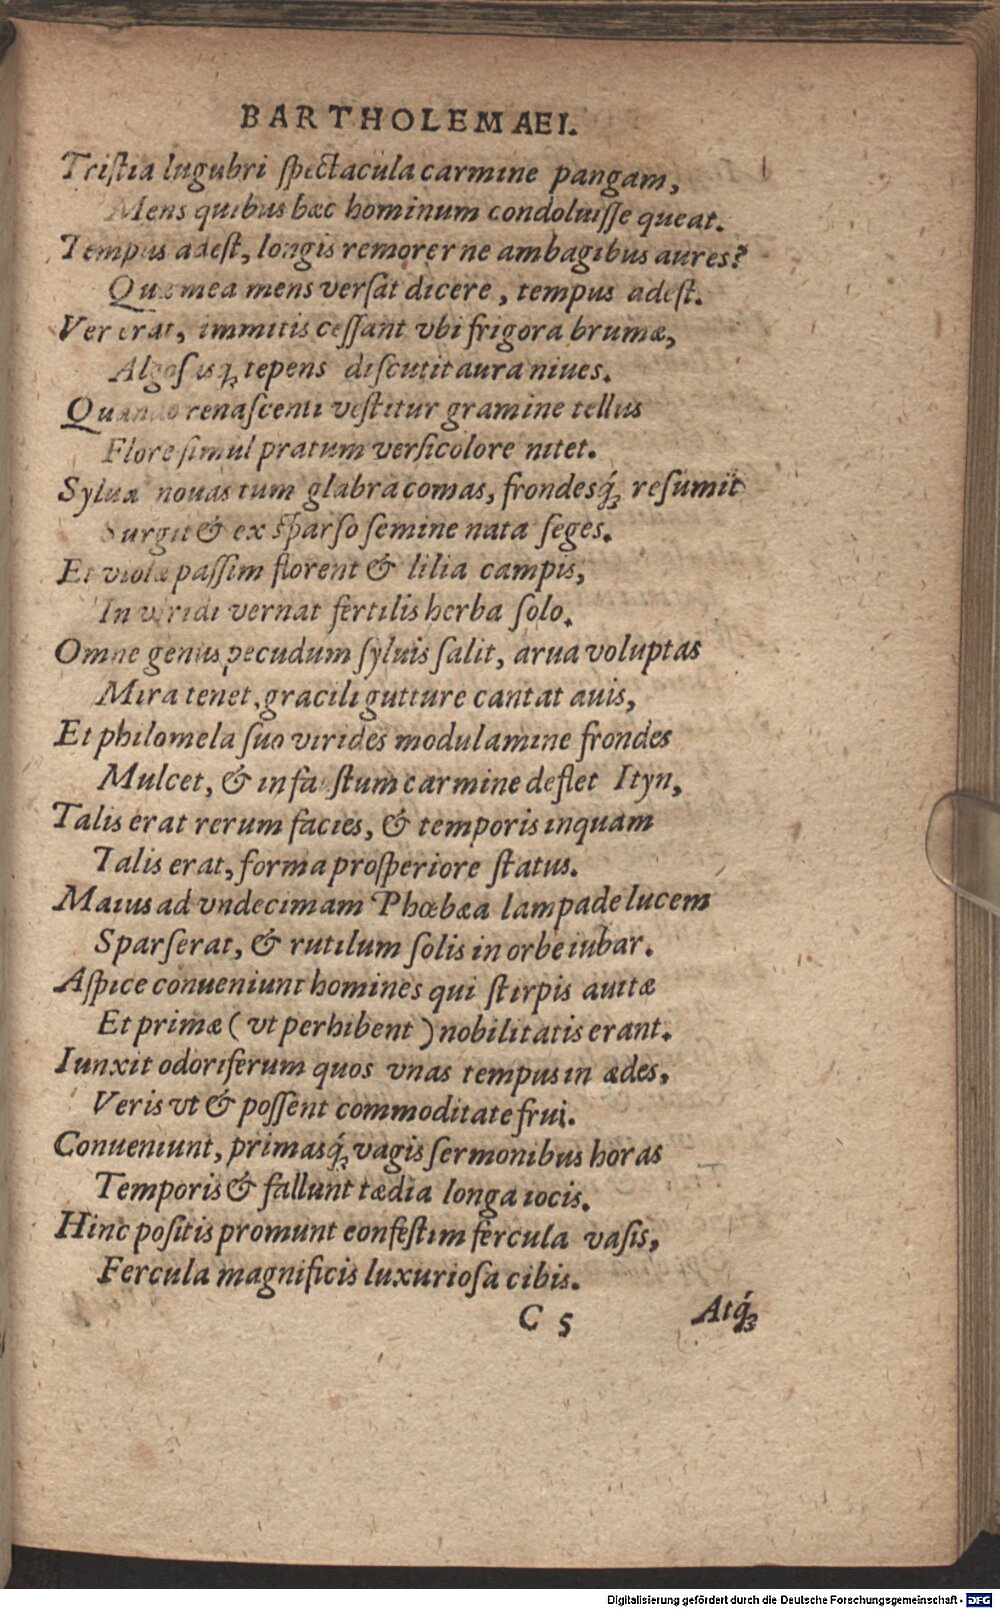 BARTHOLEMAEI.
Triſtia lugubri ſpectacula carmine pangam,
Mens quibus hæc hominum condoluiſſe queat.
Tempus adeſt, longis remorer ne ambagibus aures?
Quæ mea mens verſat dicere, tempus adeſt.
Ver erat, immitis ceſſant vbi frigora brumæ,
Algoſisq́ꝫ tepens diſcutit aura niues.
Quando renaſcenti veſtitur gramine tellus
Flore ſimul pratum verſicolore nitet.
Syluæ nouas tum glabra comas, frondesq́ꝫ reſumit
Surgit & ex sparſo ſemine nata ſeges.
Et violæ paſſim florent & lilia campis,
In viridi vernat fertilis herba ſolo.
Omne genus pecudum ſyluis ſalit, arua voluptas
Mira tenet, gracili gutture cantat auis,
Et philomela ſuo virides modulamine frondes
Mulcet, & infauſtum carmine deflet Ityn,
Talis erat rerum facies, & temporis inquam
Talis erat, forma proſperiore ſtatus.
Maius ad vndecimam Phœbæa lampade lucem
Sparſerat, & rutilum ſolis in orbe iubar.
Aſpice conueniunt homines qui ſtirpis auitæ
Et primæ (vt perhibent) nobilitatis erant.
Iunxit odoriferum quos vnas tempus in ædes,
Veris vt & poſſent commoditate frui.
Conueniunt, primasq́ꝫ vagis ſermonibus horas
Temporis & fallunt tædia longa iocis.
Hinc poſitis promunt confeſtim fercula vaſis,
Fercula magnificis luxurioſa cibis.
C 5 Atq́ꝫ
Digitalisierung gefördert durch die Deutsche Forschungsgemeinschaft - DFG